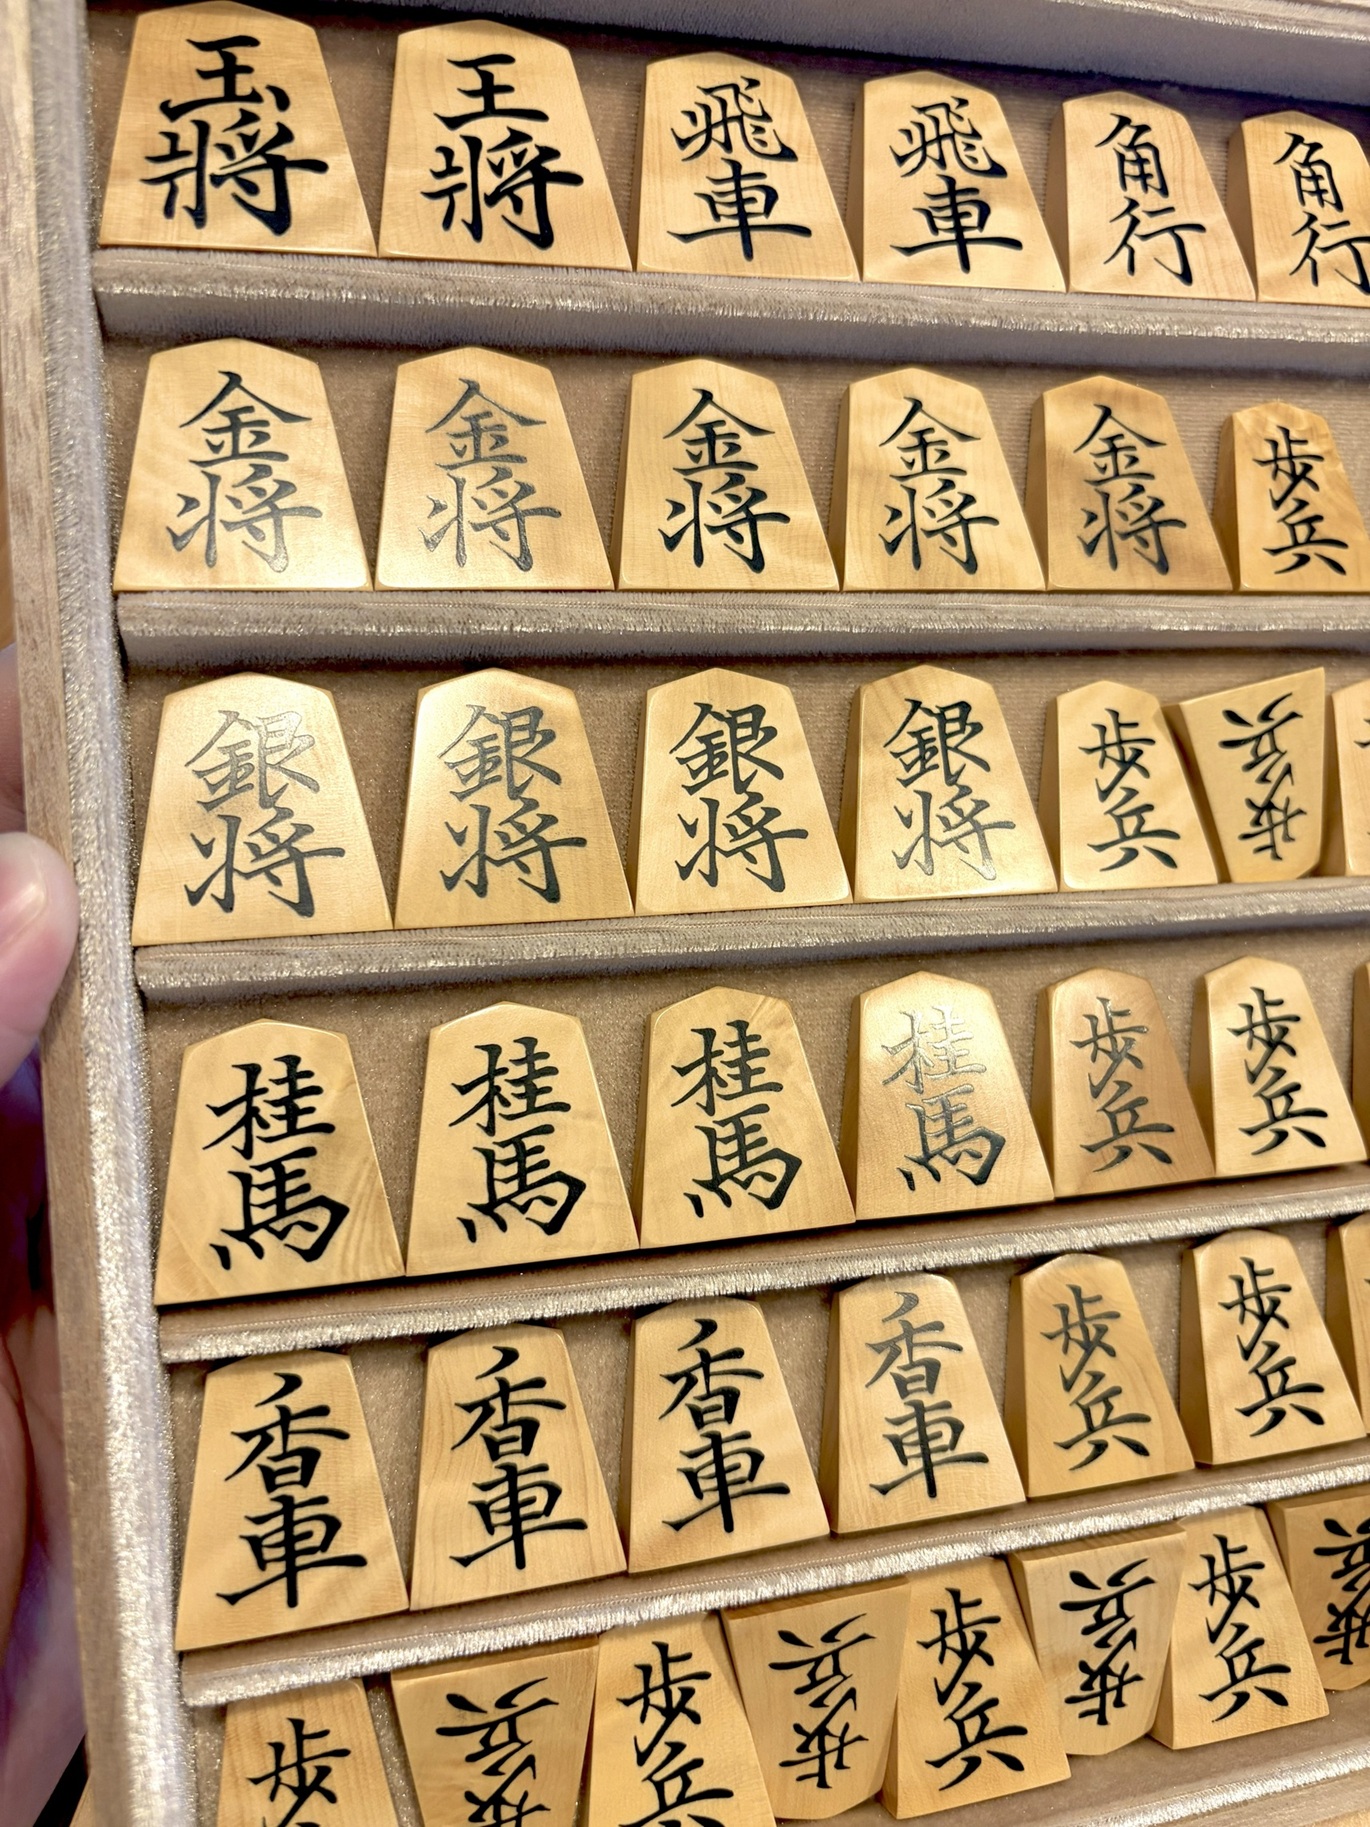 玉將
王將
飛車
飛車
角行
角行
金将
金将
金将
金将
金将
歩兵
銀将
銀将
銀将
銀将
歩兵
歩兵
桂馬
桂馬
桂馬
桂馬
歩兵
歩兵
香車
香車
香車
香車
歩兵
歩兵
歩
歩兵
歩兵
歩兵
歩兵
歩兵
歩兵
歩兵